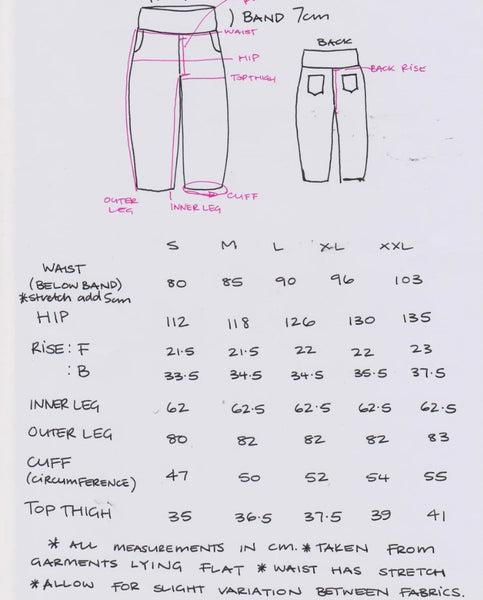 ) BAND 7cm
WAIST
HIP
TOP THIGH
BACK
BACK RISE
OUTER LEG
INNER LEG
CUFF
S M L XL XXL
WAIST
(BELOW BAND) 80 85 90 96 103
*stretch add 5cm
HIP 112 118 126 130 135
RISE : F 21.5 21.5 22 22 23
: B 33.5 34.5 34.5 35.5 37.5
INNER LEG 62 62.5 62.5 62.5 62.5
OUTER LEG 80 82 82 82 83
CUFF
(CIRCUMFERENCE) 47 50 52 54 55
TOP THIGH 35 36.5 37.5 39 41
* ALL MEASUREMENTS IN CM. * TAKEN FROM
GARMENTS LYING FLAT * WAIST HAS STRETCH
* ALLOW FOR SLIGHT VARIATION BETWEEN FABRICS.